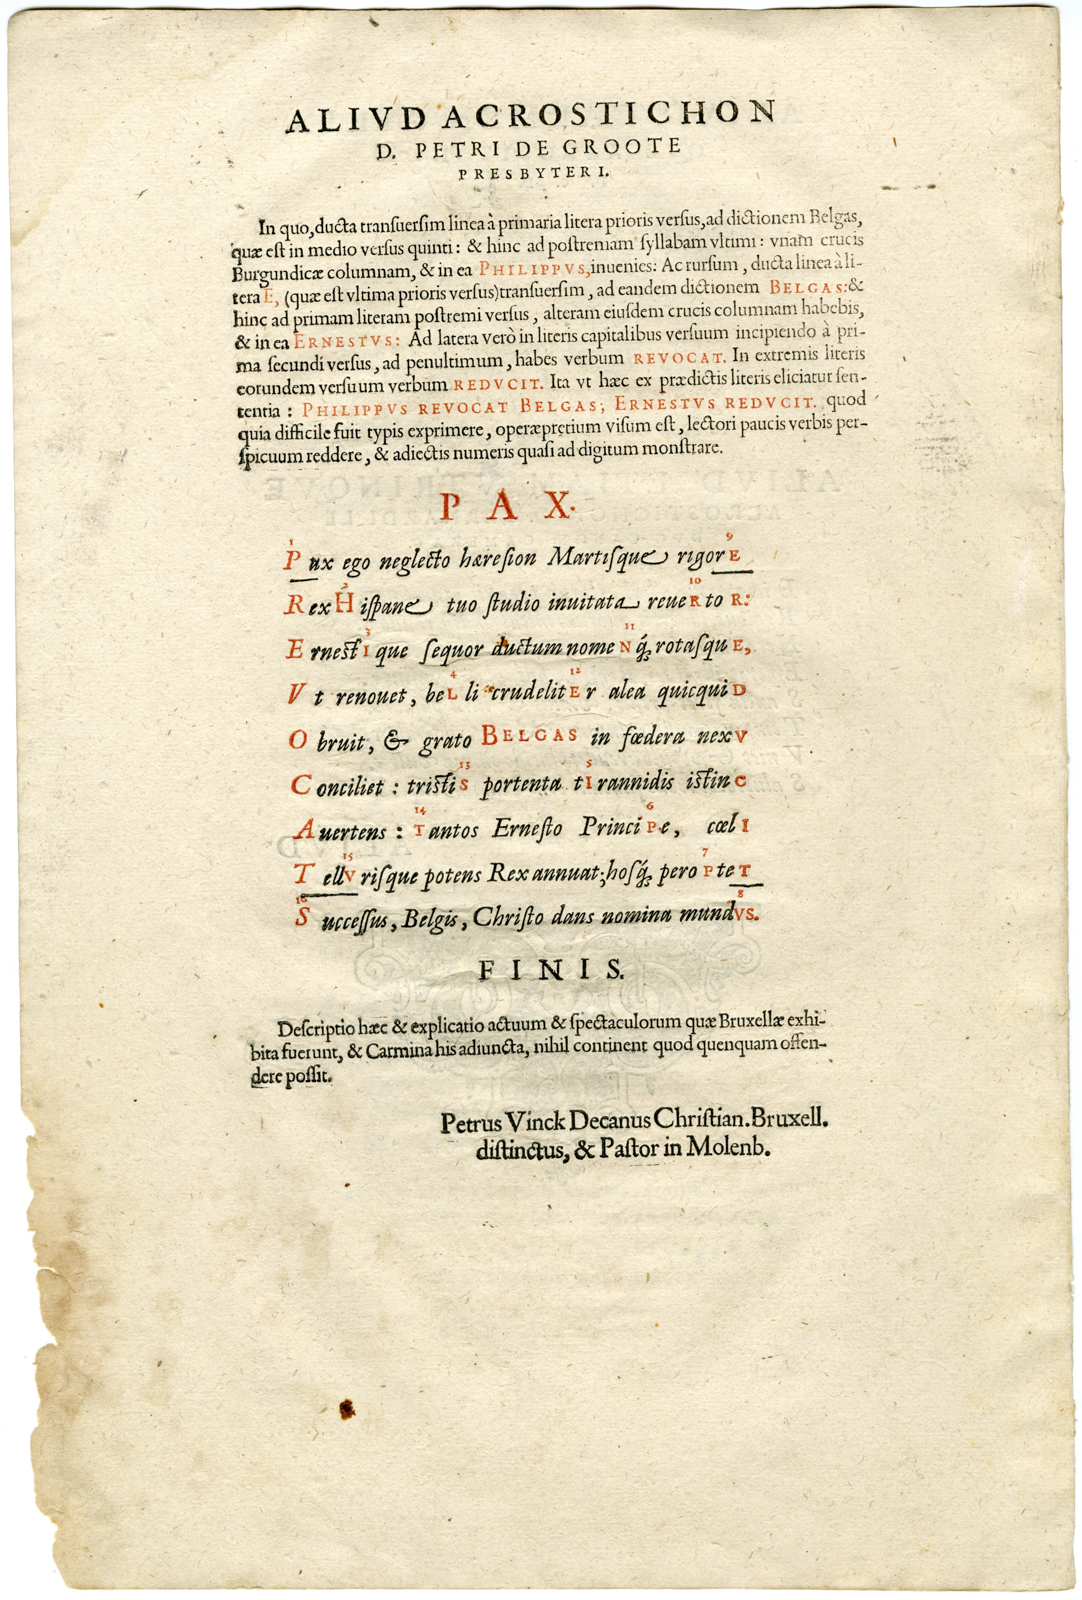 ALIVD ACROSTICHON
D. PETRI DE GROOTE
PRESBYTERI.
In quo, ducta tranſuerſim linea à primaria litera prioris verſus, ad dictionem Belgas,
quæ eſt in medio verſus quinti: & hinc ad poſtremam ſyllabam vltimi: vnam crucis
Burgundicæ columnam, & in ea PHILIPPVS, inuenies: Ac rurſum, ducta linea à li-
tera E, (quæ eſt vltima prioris verſus) tranſuerſim, ad eandem dictionem BELGAS: &
hinc ad primam literam poſtremi verſus, alteram eiuſdem crucis columnam habebis,
& in ea ERNESTVS: Ad latera verò in literis capitalibus verſuum incipiendo à pri-
ma ſecundi verſus, ad penultimum, habes verbum REVOCAT. In extremis literis
eorundem verſuum verbum REDVCIT. Ita vt hæc ex prædictis literis eliciatur ſen-
tentia: PHILIPPVS REVOCAT BELGAS; ERNESTVS REDVCIT. quod
quia difficile fuit typis exprimere, operæpretium viſum eſt, lectori paucis verbis per-
ſpicuum reddere, & adiectis numeris quaſi ad digitum monſtrare.
PAX.
1 9
Pax ego neglecto hæreſion Martiſque rigorE
2 10
Rex Hiſpane tuo ſtudio inuitata reueRto R:
3 11
ErneſtIque ſequor ductum nomeNq́ꝫ rotaſquE,
4 12
Vt renouet, beLli crudelitEr alea quicquiD
Obruit, & grato BELGAS in fœdera nexV
13 5
Conciliet: triſtiS portenta tIrannidis iſtinC
14 6
Auertens: Tantos Erneſto PrinciPe, cœlI
15 7
TellVriſque potens Rex annuat; hoſq́ꝫ peroPteT
16 8
Succeſſus, Belgis, Chriſto dans nomina mundVS.
FINIS.
Deſcriptio hæc & explicatio actuum & ſpectaculorum quæ Bruxellæ exhi-
bita fuerunt, & Carmina his adiuncta, nihil continent quod quenquam offen-
dere poſſit.
Petrus Vinck Decanus Chriſtian. Bruxell.
diſtinctus, & Paſtor in Molenb.